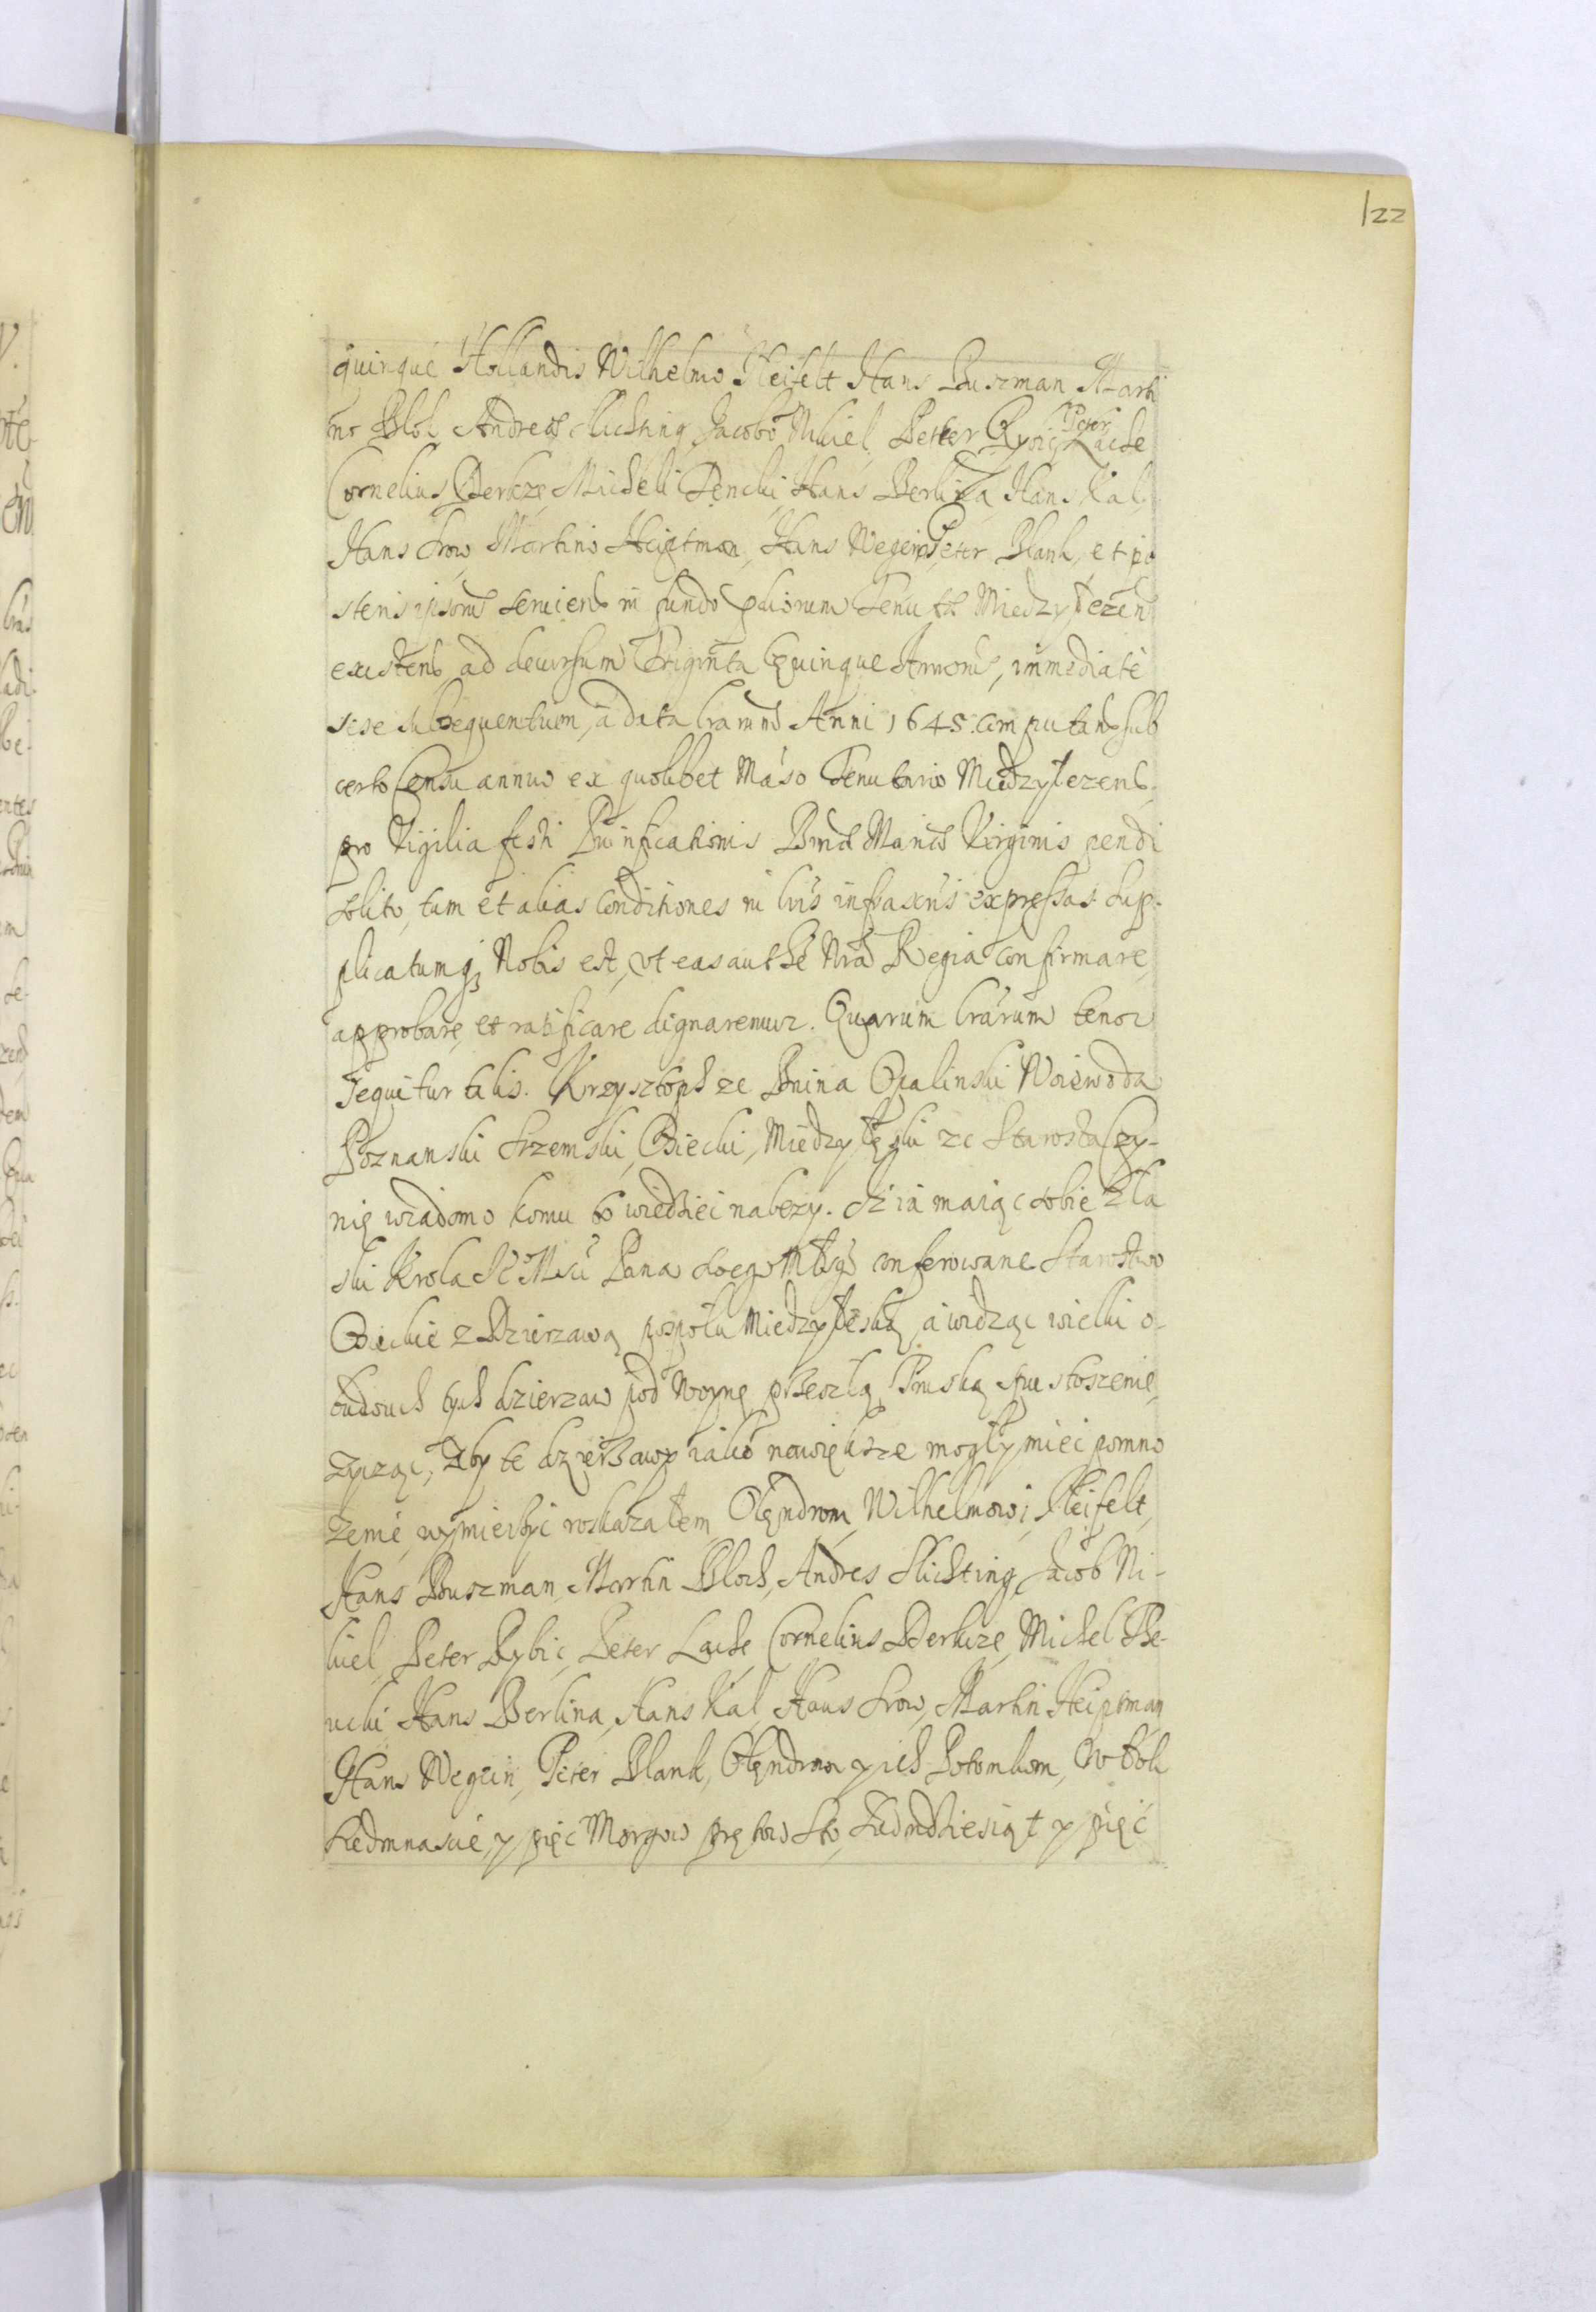 122
quinque Hollandis Wilhelmo Sleifelt Hans Buszman Marti
no Blok Andreæ Slichting Jacobo Nikiel, Petter Rybic, Peter Lache
Cornelius Berkzę Micheli Penclii Hans Berlina Hans Kal,
Hans Srow, Martino Heiptman, Hans Wegein Peter Blank, et po
steris ipsorū serviend in fundo præliorum Tenutæ Miedzyłezens
existens ad decursum Triginta Quinque Annorū, immediatè
sese subsequentium, à data lrarum Anni 1645. computand sub
certo Censu annuo ex quolibet Manso Tenutario Miedzyłezens.
pro Vigilia festi Purificationis Bmæ Mariæ Virginis pendi
solito, tum et alias Conditiones in lris infrascris expressas. Sup-
plicatumq; Nobis est, vt eas authē Nra Regia confirmare,
approbare, et ratificare dignaremur. Quarum lrarum tenor
sequitur talis. Krzysztoph ze Bnina Opalinski Woiewoda
Poznanski Srzemski, Osiecki, Miedzyłęski ze Starosta Czy-
nię wiadomo komu to wiedziec nalezy. Iż ia maiąc sobie z ła
ski Krola Je⁰ Msci Pana swego Młsgo conferowane Starostwo
Osieckie z Dzierzawą pospołu Miedzyłeską, a widząc wielki o-
budwuch tych dzierzaw pod Woynę przeszłą Pruską spustoszenie,
zycząc, żeby te dzierzawy iako nawiększe mogły miec pomno
żenie, wymierzyc roskazałem, Olęndrom, Wilhelmowi Sleifelt,
Hans Buszman, Martin Bloch, Andres Slichting, Jacob Ni-
kiel, Peter Rybic, Peter Lache, Cornelius Berkize, Michel Pe-
ncki Hans Berlina, Hans Kal, Hans Srow, Martin Heiptman,
Hans Wegein, Peter Blank, Olęndrom y ich Potomkom, Włok
Siedmnascie, y pięć Morgow prętow Sto, Siedmdziesiąt y pięć